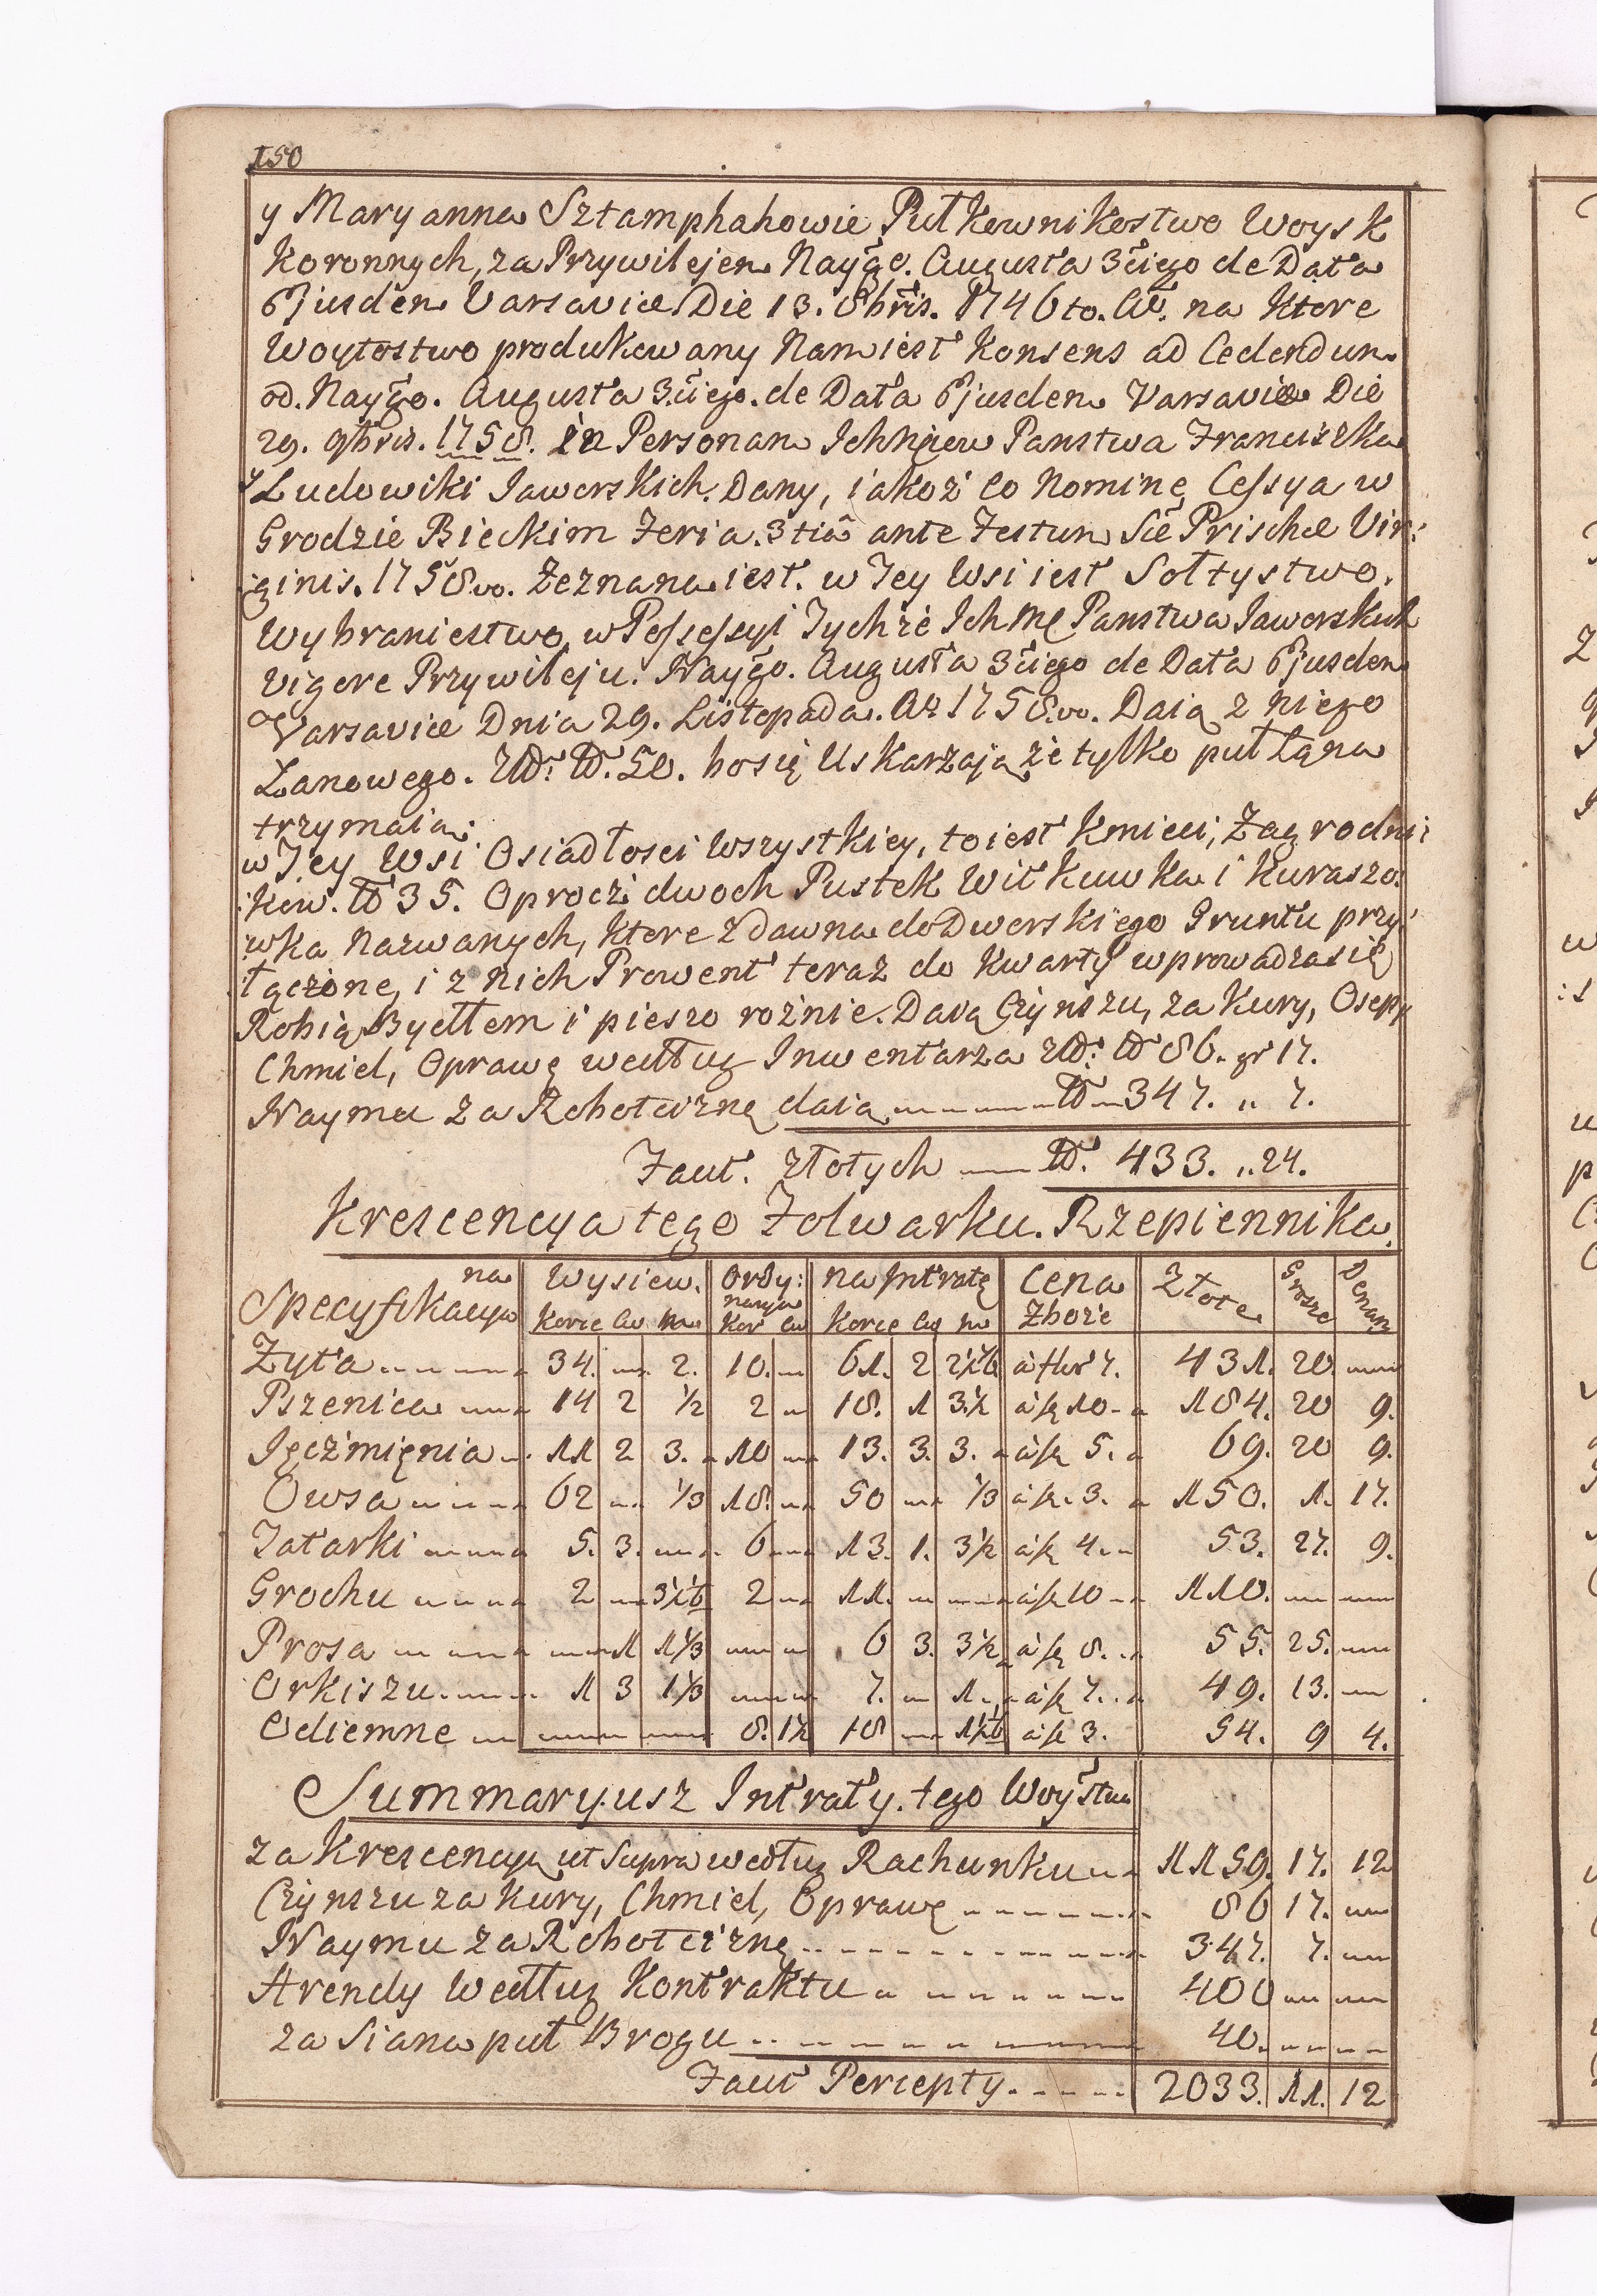 150
y Maryanna Sztamphahowie Pułkownikostwo Woysk
Koronnych, za Przywilejem Nayjgo. Augusta 3ciego de Data
Ejusdem Varsaviæ Die 13. 8bris. 1746to. na Ktore
Woytostwo produkowany Nam iest Konsens ad Cedendum
od. Nayjgo. Augusta 3ciego. de Data Ejusdem Varsaviæ Die
29. 9bris. 1758. in Personam Ichmciow Panstwa Franciszka
y Ludowiki Jaworskich. Dany, iakoż Eo Nomine Cessya w
Grodzie Bieckim Feria. 3tia ante Festum Sæ Priscæ Vir:
:ginis. 1758vo. Zeznana iest. w Tey Wsi iest Sołtystwo.
Wybraniestwo w Possessyi Tychże Ichmc Panstwa Jaworskich
Vigore Przywileju. Nayjgo. Augusta 3ciego de Data Ejusdem
Varsaviæ Dnia 29. Listopada. 1758vo. Daią z niego
Łanowego. 50. bo się Uskarzaią że tylko puł Łana
trzymaia.
w Tey Wsi Osiadłosci Wszystkiey, to iest Kmieci, Zagrodni:
:kow. 35. Oprocz dwoch Pustek Witkuwka i Kuraszo:
:wka Nazwanych, Ktore z dawna do Dworskiego Gruntu przy:
łączone, i z nich Prowent teraz do Kwarty wprowadza się
Robią Bydłem i pieszo rożnie. Daią Czynszu, za Kury, Osepy
Chmiel, Oprawę według Inwentarza 86. gr 17.
Naymu za Robociznę daią 347. „ 7.
Facit. złotych 433. „ 24.
Krescencya tego Folwarku. Rzepiennika.
Specyfikacya na Wysiew. Ordy: narya na Intratę Cena Złote Grosze Denary
Korce Cw m Kor Cw Korce Cw m Zboże
Zyta 34. 2. 10. 61. 2 a fl 7. 431. 20.
Pszenica 14 2 1/2 2 18. 1 3 1/2 a 10 184. 20 9.
Jęczmięnia 11 2 3. 10 13. 3. 3. a 5. 69. 20 9.
Owsa 62 1/3 18. 50 1/3 a 3. 150. 1. 17.
Tatarki 5. 3. 6 13. 1. 3 1/2 a 4. 53. 27. 9.
Grochu 2 2 11. a 10 110.
Prosa 1 1 1/3 6 3. 3 1/2 a 8. 55. 25.
Orkiszu 1 3 1 1/3 7. 1. a 7. 49. 13.
Odiemne 8. 1 1/2 18 a 3. 54. 9 4.
Summaryusz Intraty. tego Woystwa
za Krescencyą ut Supra według Rachunku 1159. 17. 12
Czynszu za Kury, Chmiel, Oprawę 86 17.
Naymu za Robociznę 347. 7.
Arendy Według Kontraktu 400
za Siana puł Brogu 40.
Facit Percepty 2033. 11. 12